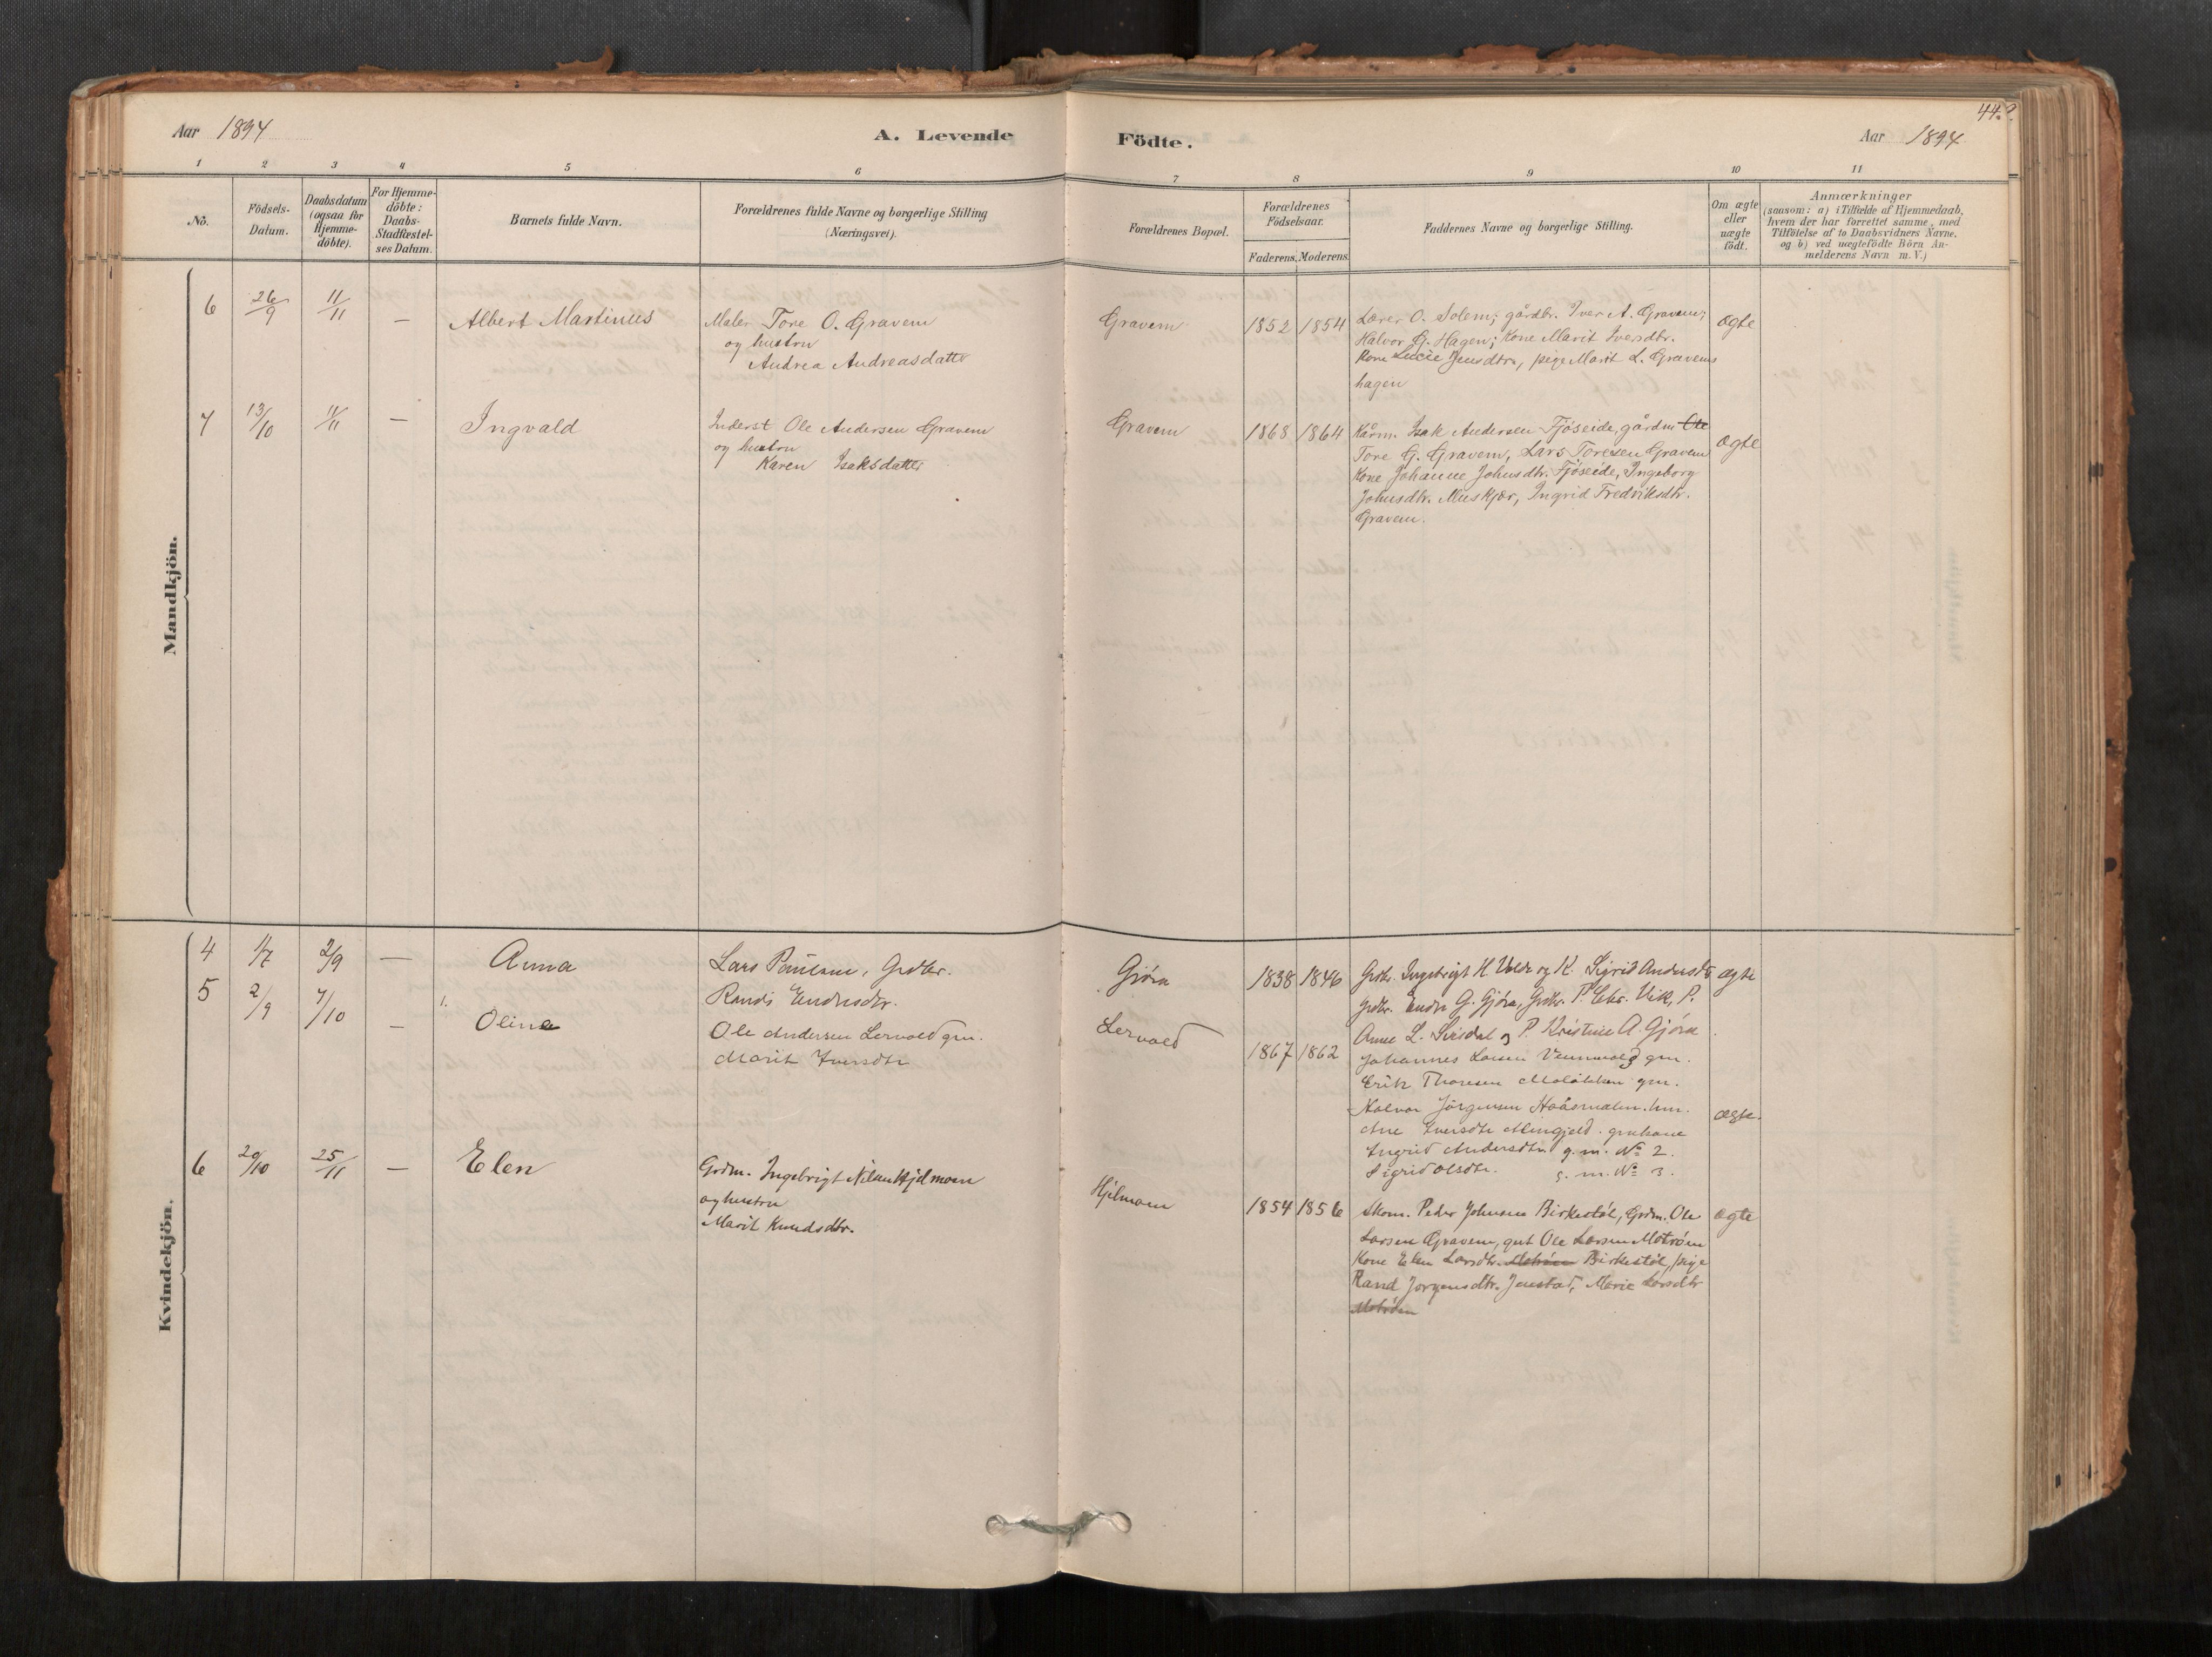 Aar 1894
A. Levende
Födte.
Aar 1894
44.
1 2 3 4 5 6 7 8 9 10 11
No.
Födsels-
Datum.
Daabsdatum
(ogsaa for
Hjemme-
döbte).
For Hjemme-
döbte:
Daabs-
Stadfæstel-
ses Datum.
Barnets fulde Navn.
Forældrenes fulde Navne og borgerlige Stilling
(Næringsvei).
Forældrenes Bopæl.
Forældrenes
Födselsaar.
Faderens. Moderens.
Faddernes Navne og borgerlige Stilling.
Om ægte
eller
uægte
födt.
Anmærkninger
(saasom: a) i Tilfælde af Hjemmedaab,
hvem der har forrettet samme, med
Tilföielse af to Daabsvidners Navne,
og b) ved uægtefödte Börn An-
melderens Navn m. V.)
Mandkjön.
6 26/9 11/11 — Albert Martinus
Maler Tore O. Gravem
og hustru
Andrea Andreasdatter
Gravem 1852 1854
Lærer O. Solem; gårdbr. Iver A. Gravem;
Halvor G. Hagen; Kone Marit Iversdtr.
Kone Lucie Jensdtr., pige Marit L. Gravems
hagen
ægte
7 13/10 11/11 — Ingvald
Inderst Ole Andersen Gravem
og hustru
Karen Isaksdatter
Gravem 1868 1864
Kårm. Isak Andersen Fjöseide, gårdm. Ole
Tore G. Gravem, Lars Toresen Gravem
Kone Johanne Johnsdtr. Fjöseide, Ingeborg
Johnsdtr. Muskjær, Ingrid Fredriksdtr.
Gravem.
ægte
Kvindekjön.
4 1/7 2/9 — Anna
Lars Paulsen, Grdbr.
Randi Endresdtr.
Gjöra 1838 1846
Grdbr. Ingebrigt H. Volde og K. Sigrid Andersdtr
grdbr. Endre G. Gjöra, Grdbr. P. Chr. Vik, P.
Anne L. Svisdal og P. Kristine A. Gjöra
ægte
5 2/9 7/10 — Oline
Ole Andersen Lervold gm.
Marit Iversdtr
Lervold 1867 1862
Johannes Larsen gm.
Erik Thoresen gm.
Halvor Jörgensen
Ane Iversdtr gmkone
Ingrid Andersdtr g. m. No 2.
Sigrid Olsdtr. g. m. No 3.
ægte.
6 29/10 25/11 — Elen
Grdm. Ingebrigt Nilsen Hjelmoen
og hustru
Marit Knudsdtr.
Hjelmoen 1854 1856
Skom. Peder Johnsen Birkestöl, Grdm. Ole
Larsen Gravem, gut Ole Larsen Moträen
Kone Elen Larsdtr. Moträen Birkestöl, pige
Rand Jorgensdtr. Jenstad, Marie Larsdtr
Moträen
ægte